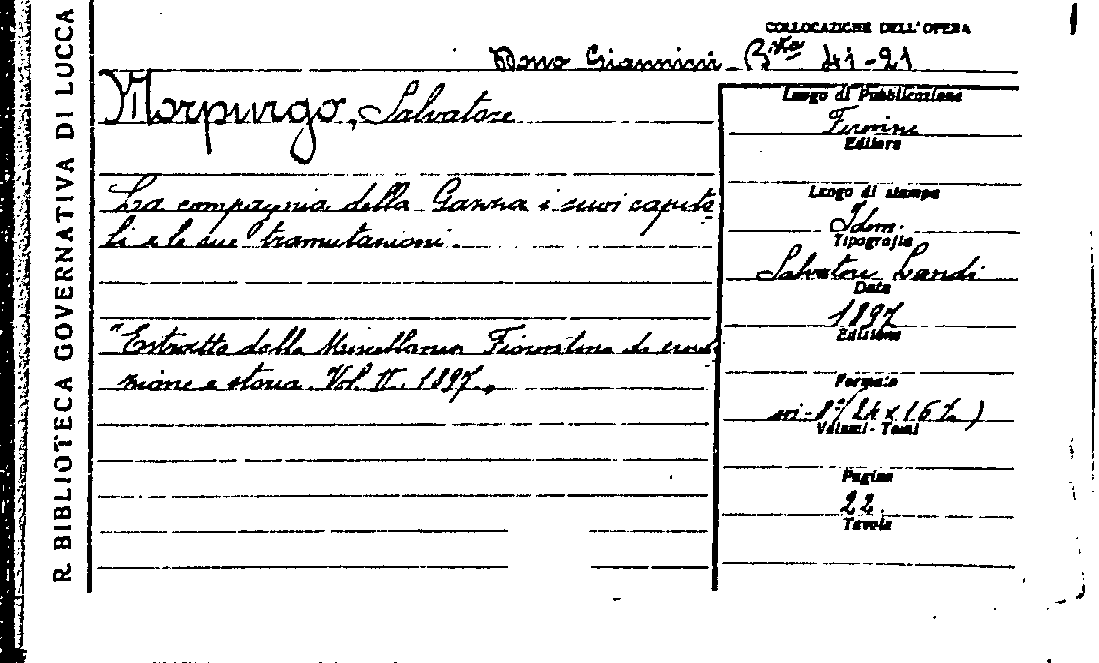 R. BIBLIOTECA GOVERNATIVA DI LUCCA
COLLOCAZIONE DELL'OPERA
Dono Giannini - B.ta 41-21
Morpurgo, Salvatore
La compagnia della Gazza i suoi capito
li e le sue tramutazioni.
"Estratto dalla Miscellanea Fiorentina di erudi
zione e storia. Vol. II. 1897„
Luogo di Pubblicazione
Firenze
Editore
Luogo di stampa
Idem.
Tipografia
Salvatore Landi
Data
1897
Edizione
Formato
in-8° (24 x 16 ½)
Volumi - Tomi
Pagine
22.
Tavole